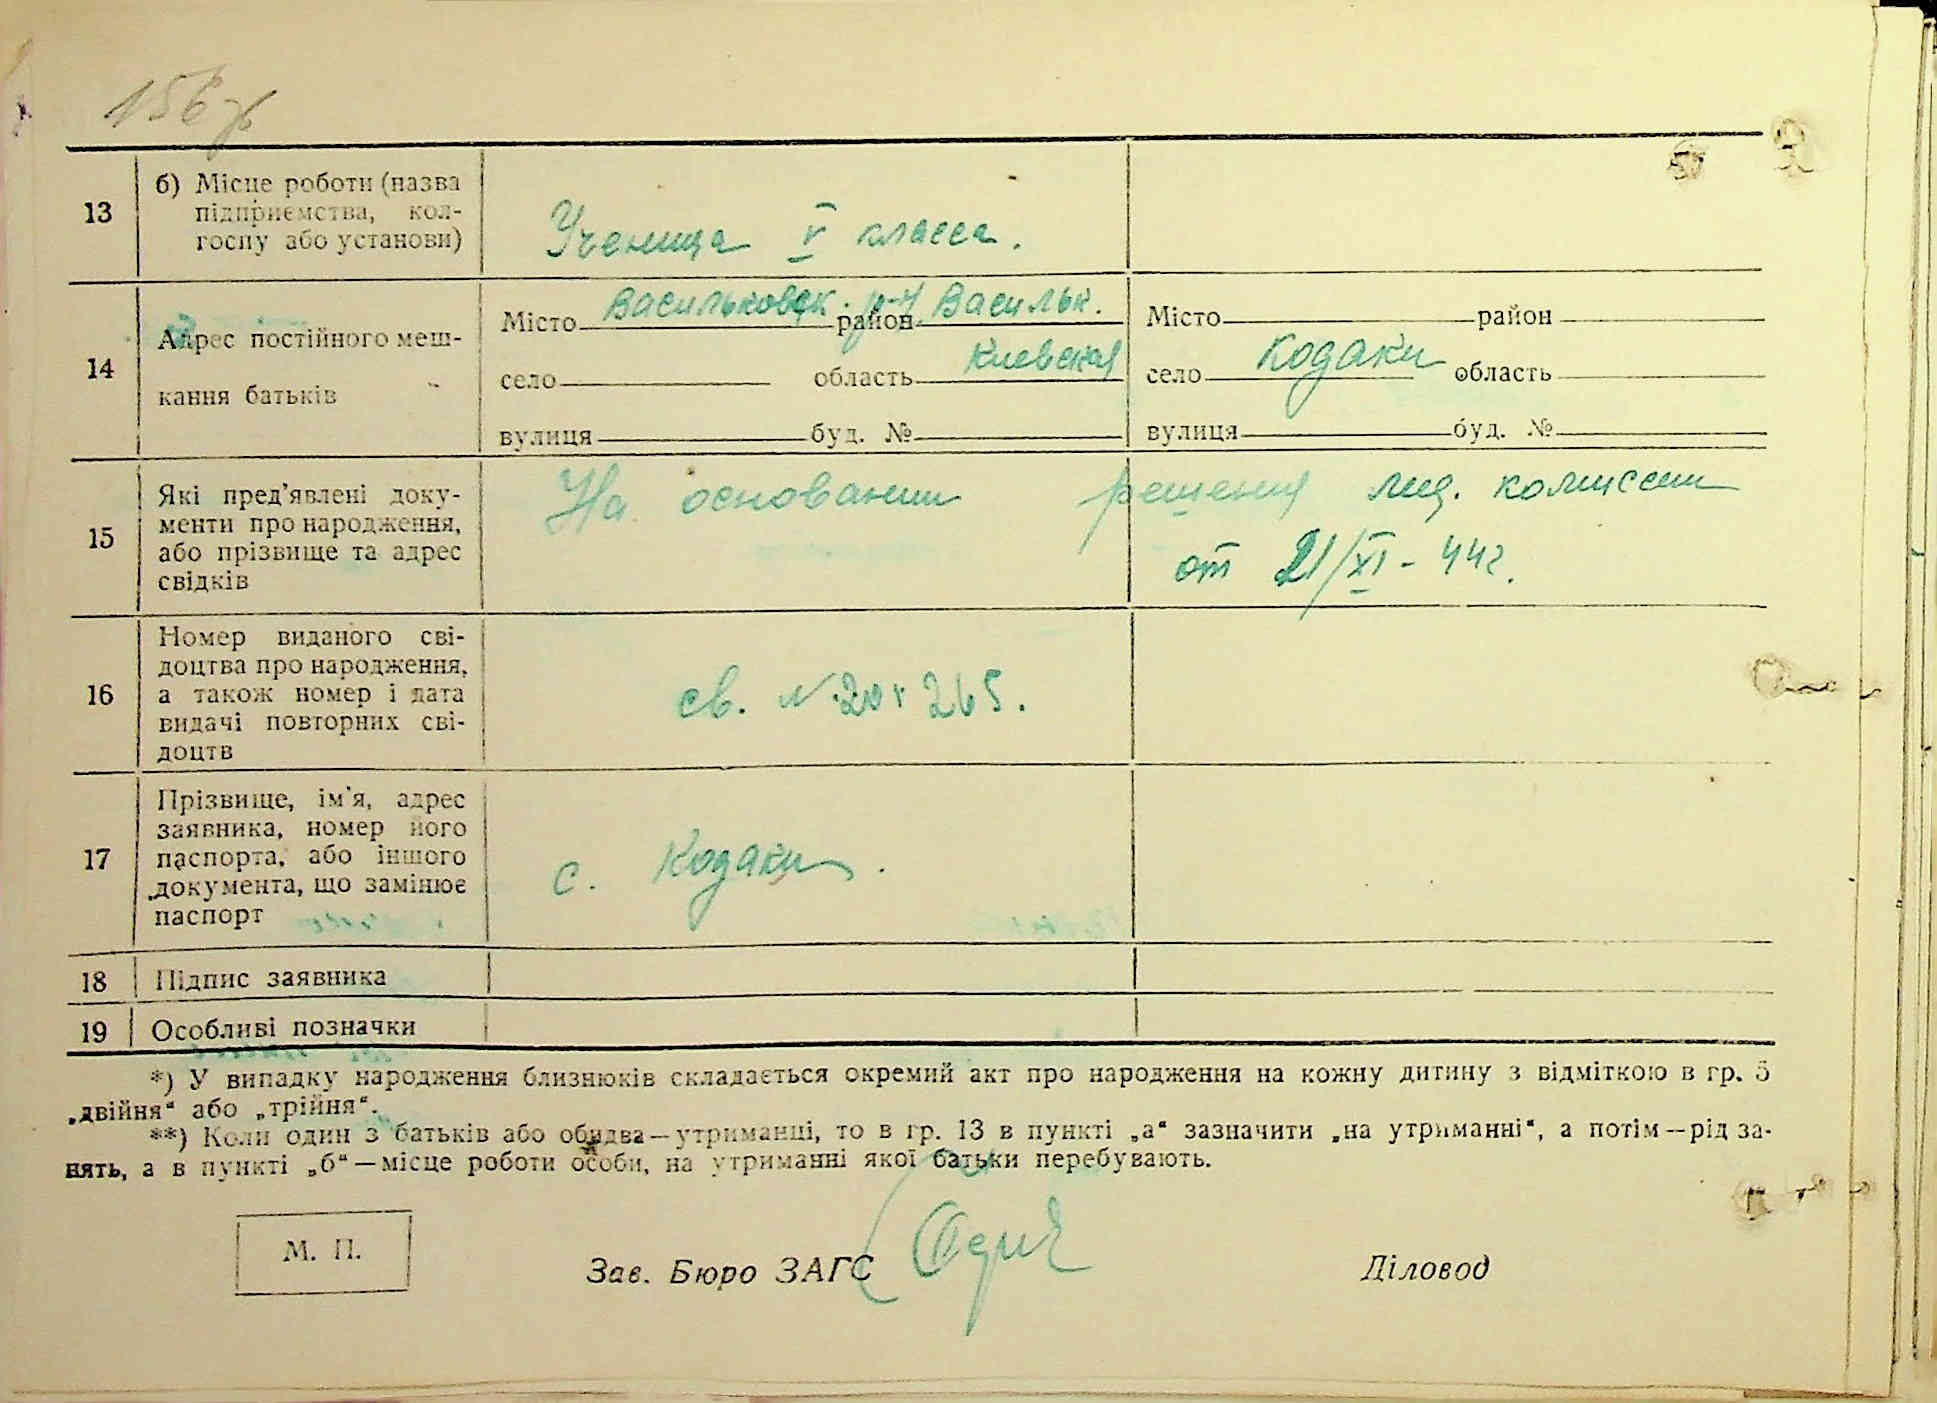 13
б) Місце роботи (назва
підприємства, кол-
госпу або установи)
Ученица V класса.
14
Адрес постійного меш-
кання батьків
Місто Васильковск. р-н район Васильк.
село область Киевская
вулиця буд. №
Місто район
село Кодаки область
вулиця буд. №
15
Які пред'явлені доку-
менти про народження,
або прізвище та адрес
свідків
На основании решения мед. комиссии
от 21/XI - 44г.
16
Номер виданого сві-
доцтва про народження,
а також номер і дата
видачі повторних сві-
доцтв
св. №
265.
17
Прізвище, ім'я, адрес
заявника, номер його
паспорта, або іншого
документа, що замінює
паспорт
с. Кодаки.
18 Підпис заявника
19 Особливі позначки
*) У випадку народження близнюків складається окремий акт про народження на кожну дитину з відміткою в гр. 5
„двійня“ або „трійня“.
**) Коли один з батьків або обидва—утриманці, то в гр. 13 в пункті „а“ зазначити „на утриманні“, а потім—рід за-
нять, а в пункті „б“—місце роботи особи, на утриманні якої батьки перебувають.
М. П.
Зав. Бюро ЗАГС
Діловод